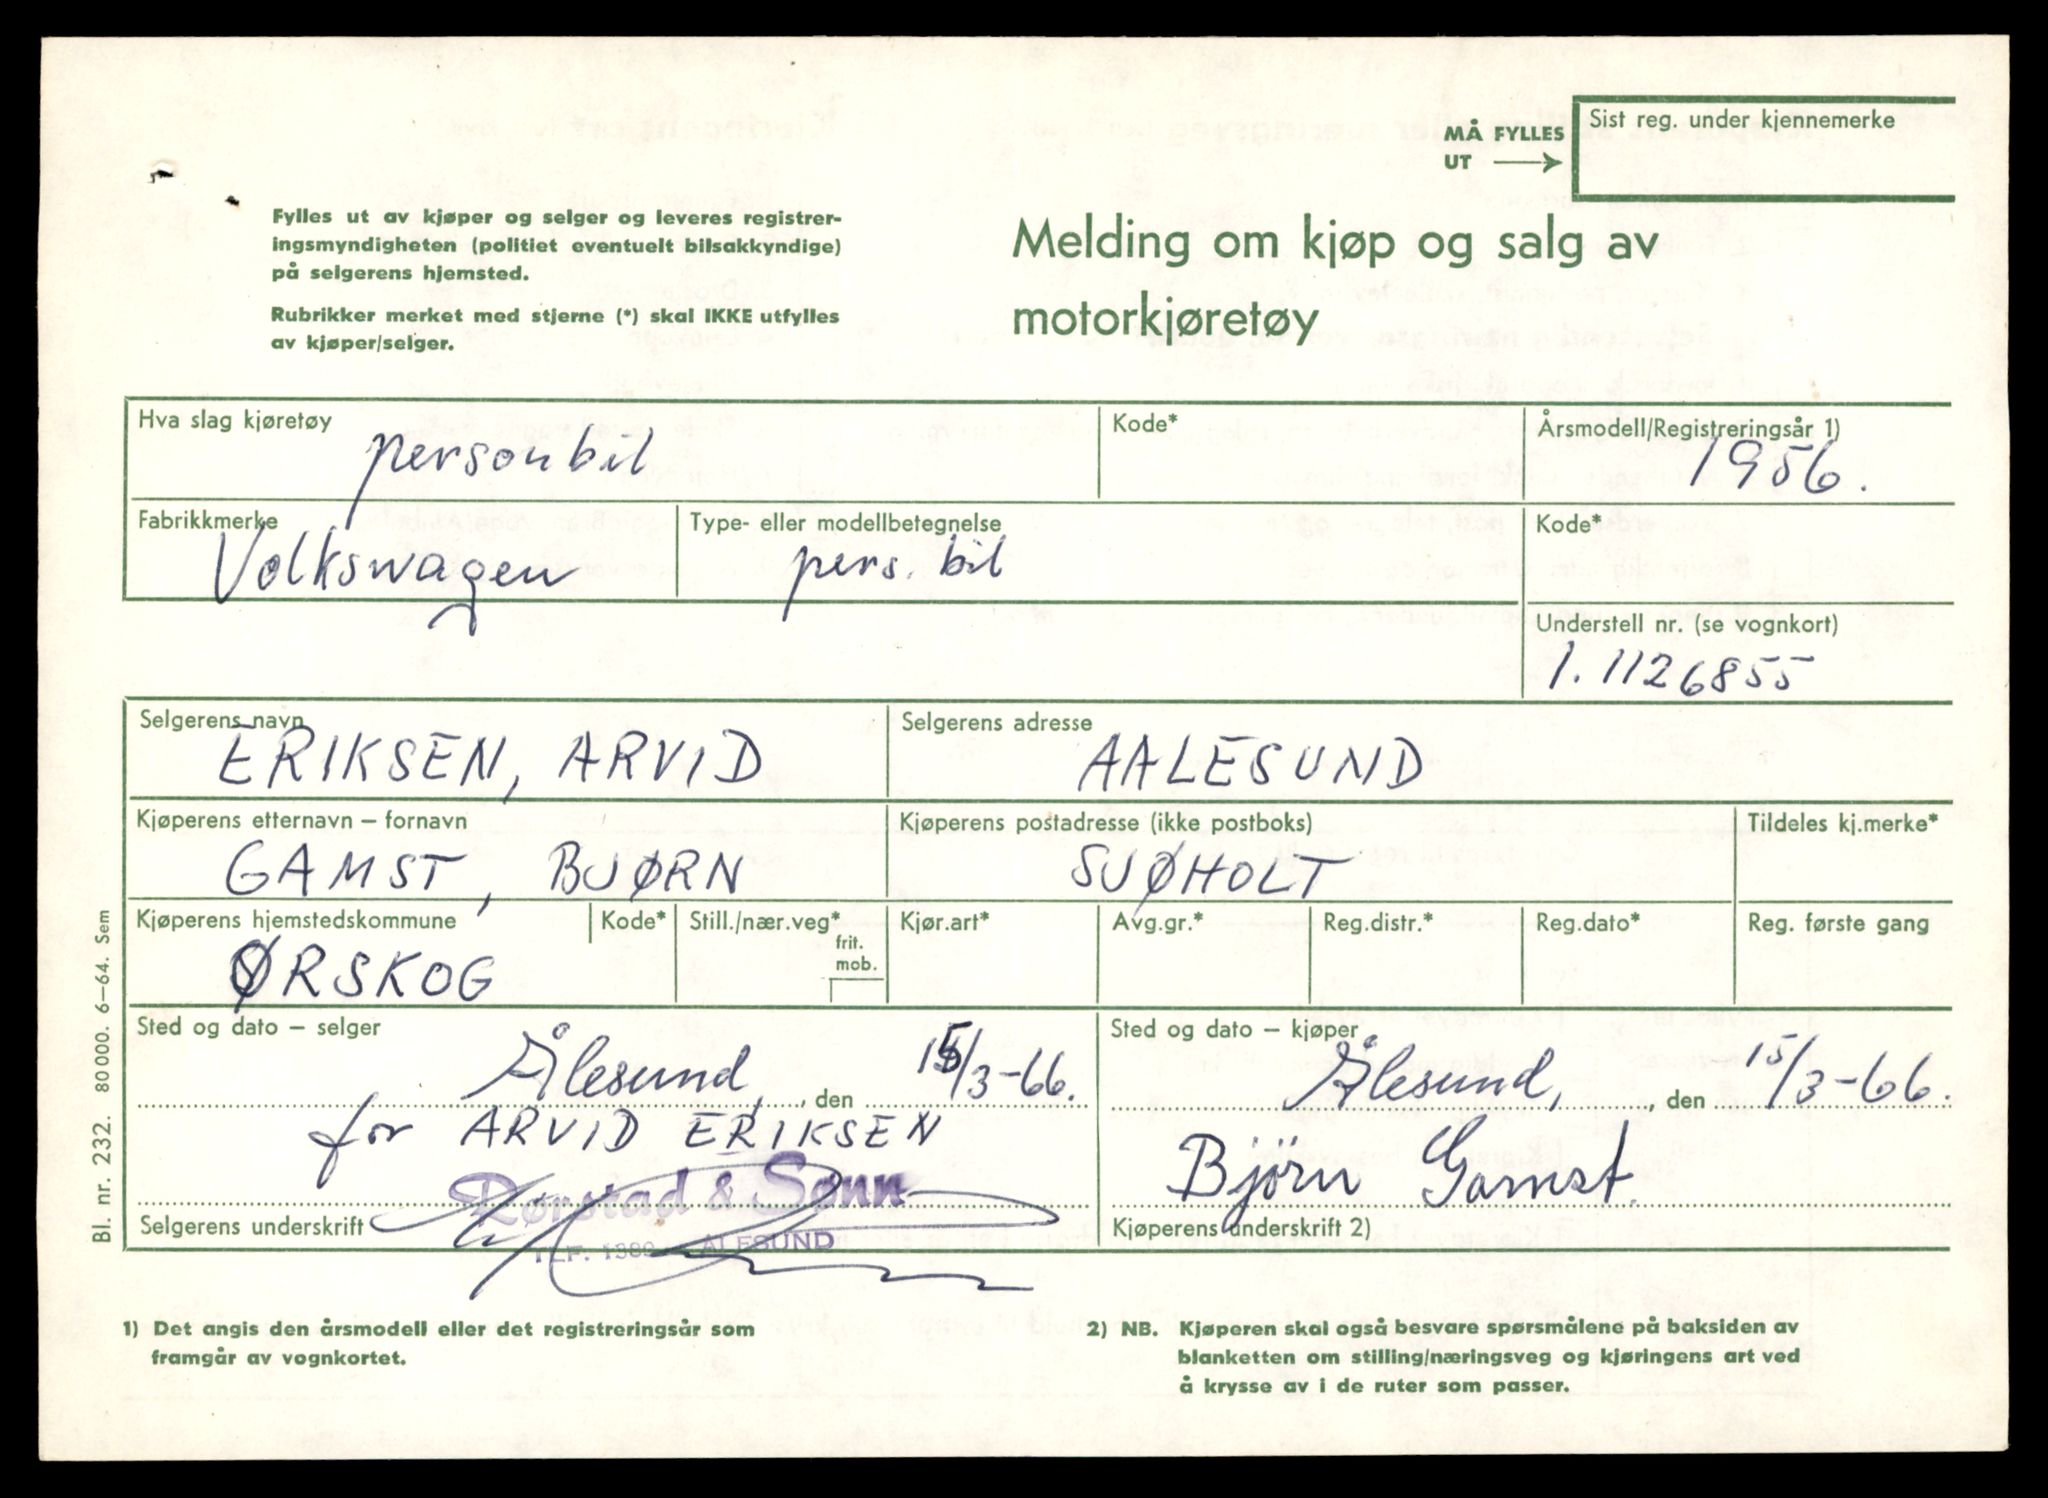 Sist reg. under kjennemerke
MÅ FYLLES
UT
Fylles ut av kjøper og selger og leveres registrer-
ingsmyndigheten (politiet eventuelt bilsakkyndige)
på selgerens hjemsted.
Rubrikker merket med stjerne (*) skal IKKE utfylles
av kjøper/selger.
Melding om kjøp og salg av
motorkjøretøy
Hva slag kjøretøy
personbil
Kode*
Årsmodell/Registreringsår 1)
1956.
Fabrikkmerke
Volkswagen
Type- eller modellbetegnelse
pers. bil
Kode*
Understell nr. (se vognkort)
1.1126855
Selgerens navn
ERIKSEN, ARVID
Selgerens adresse
AALESUND
Kjøperens etternavn – fornavn
GAMST, BJØRN
Kjøperens postadresse (ikke postboks)
SJØHOLT
Tildeles kj.merke*
Kjøperens hjemstedskommune
ØRSKOG
Kode*
Still./nær.veg*
frit.
mob.
Kjør.art*
Avg.gr.*
Reg.distr.*
Reg.dato*
Reg. første gang
Sted og dato – selger
Ålesund, den 15/3-66.
for ARVID ERIKSEN
Rørstad & Sønn
TLF. 1380 - ÅLESUND
Selgerens underskrift
Sted og dato – kjøper
Ålesund, den 15/3-66.
Björn Gamst.
Kjøperens underskrift 2)
Bl. nr. 232. 80000. 6–64. Sem
1) Det angis den årsmodell eller det registreringsår som
framgår av vognkortet.
2) NB. Kjøperen skal også besvare spørsmålene på baksiden av
blanketten om stilling/næringsveg og kjøringens art ved
å krysse av i de ruter som passer.